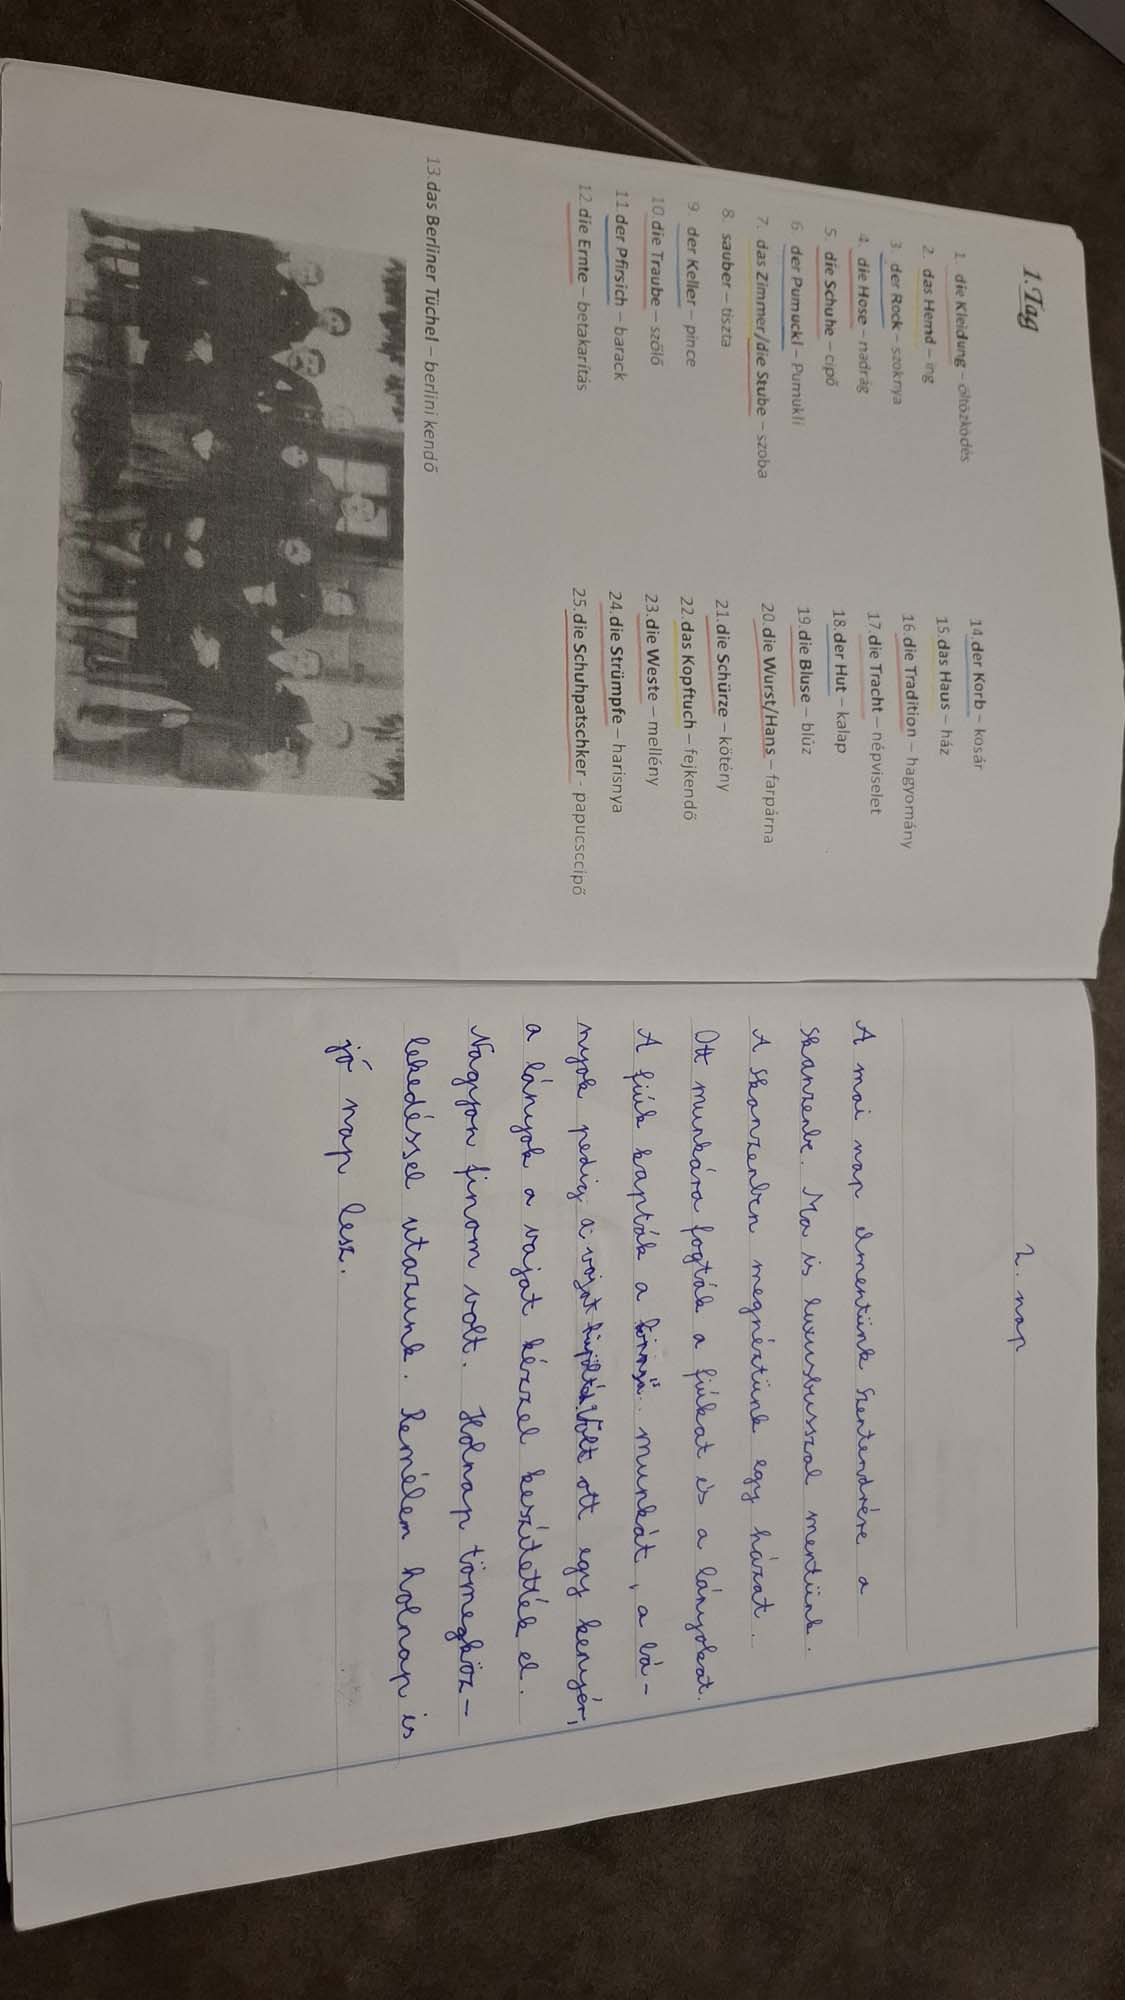 1. Tag
1. die Kleidung – öltözködés
2. das Hemd – ing
3. der Rock – szoknya
4. die Hose – nadrág
5. die Schuhe – cipő
6. der Pumuckl – Pumukli
7. das Zimmer/die Stube – szoba
8. sauber – tiszta
9. der Keller – pince
10. die Traube – szőlő
11. der Pfirsich – barack
12. die Ernte – betakarítás
13. das Berliner Tüchel – berlini kendő
14. der Korb – kosár
15. das Haus – ház
16. die Tradition – hagyomány
17. die Tracht – népviselet
18. der Hut – kalap
19. die Bluse – blúz
20. die Wurst/Hans – farpárna
21. die Schürze – kötény
22. das Kopftuch – fejkendő
23. die Weste – mellény
24. die Strümpfe – harisnya
25. die Schuhpatschker - papucscipő
2. nap
A mai nap elmentünk Szentendrére a
skanzenbe. Ma is luxusbusszal mentünk.
A skanzenben megnéztünk egy házat.
Ott munkára fogták a fiúkat és a lányokat.
A fiúk kapták a munkát, a lá-
nyok pedig a vajat köpülték. Volt ott egy kenyér,
a lányok a vajat kézzel készítették el.
Nagyon finom volt. Holnap tömegköz-
lekedéssel utazunk. Remélem holnap is
jó nap lesz.